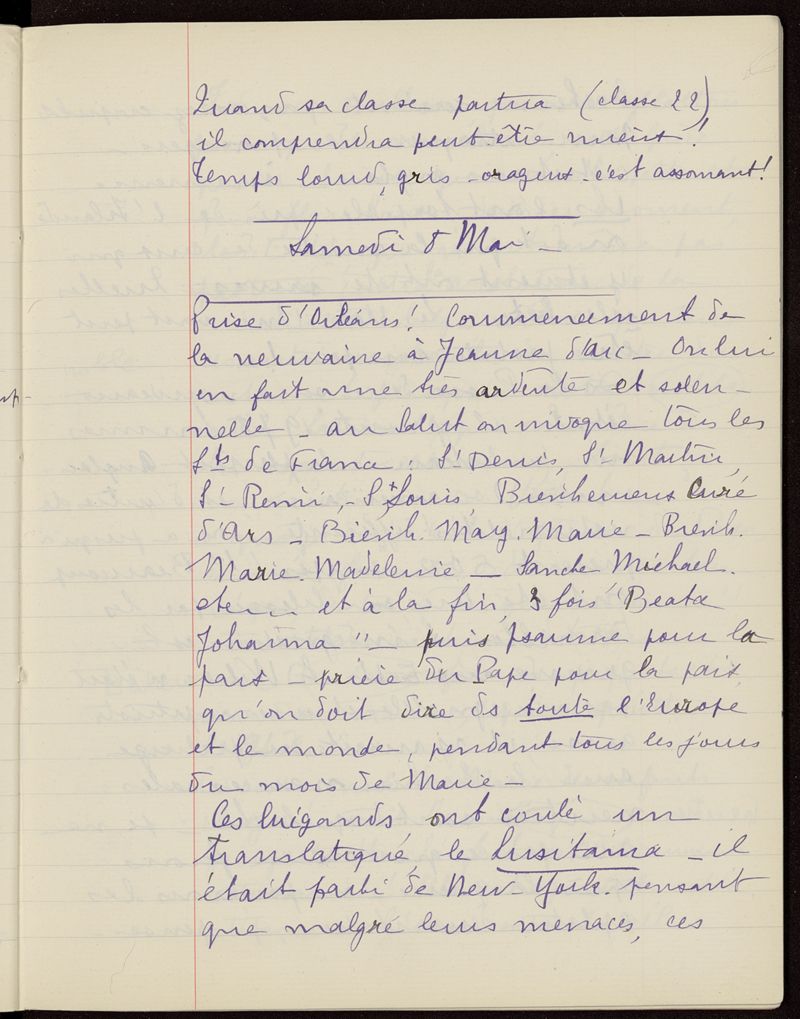 Quand sa classe partira (classe 22)
il comprendra peut-être mieux!
Temps lourd, gris - orageux - c'est assomant!
Samedi 8 Mai -
Prise d'Orléans! Commencement de
la neuvaine à Jeanne d'Arc - On lui
en fait une très ardente et solen-
nelle - au Salut on invoque tous les
Sts de France: St Denis, St Martin,
St Remi, - St Louis, Bienheureux Curé
d'Ars - Bienh. Marg. Marie - Bienh.
Marie. Madeleine - Sancte Michael.
etc... et à la fin, 3 fois "Beata
Johanna" - puis psaume pour la
paix - prière du Pape pour la paix,
qu'on doit dire ds toute l'Europe
et le monde, pendant tous les jours
du mois de Marie -
Ces brigands ont coulé un
translatique, le Lusitania - il
était parti de New-York. pensant
que malgré leurs menaces, ces